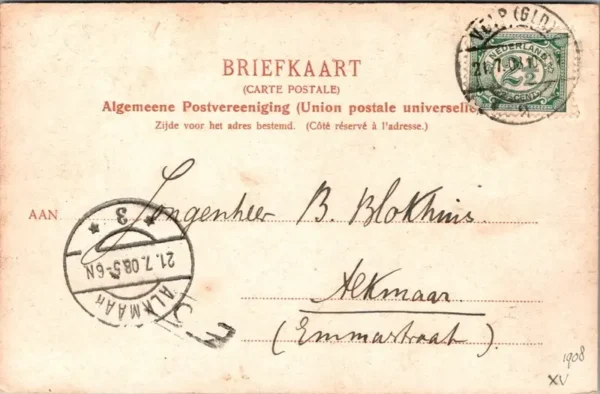 VELP (GLD)
21.7.08.
NEDERLAND
2½
CENT
BRIEFKAART
(CARTE POSTALE)
Algemeene Postvereeniging (Union postale universelle)
Zijde voor het adres bestemd. (Côté réservé à l'adresse.)
AAN Jongenheer B. Blokhuis.
3
21.7.08 5-6N
ALKMAAR
Alkmaar.
(Emmastraat).
1908
XV